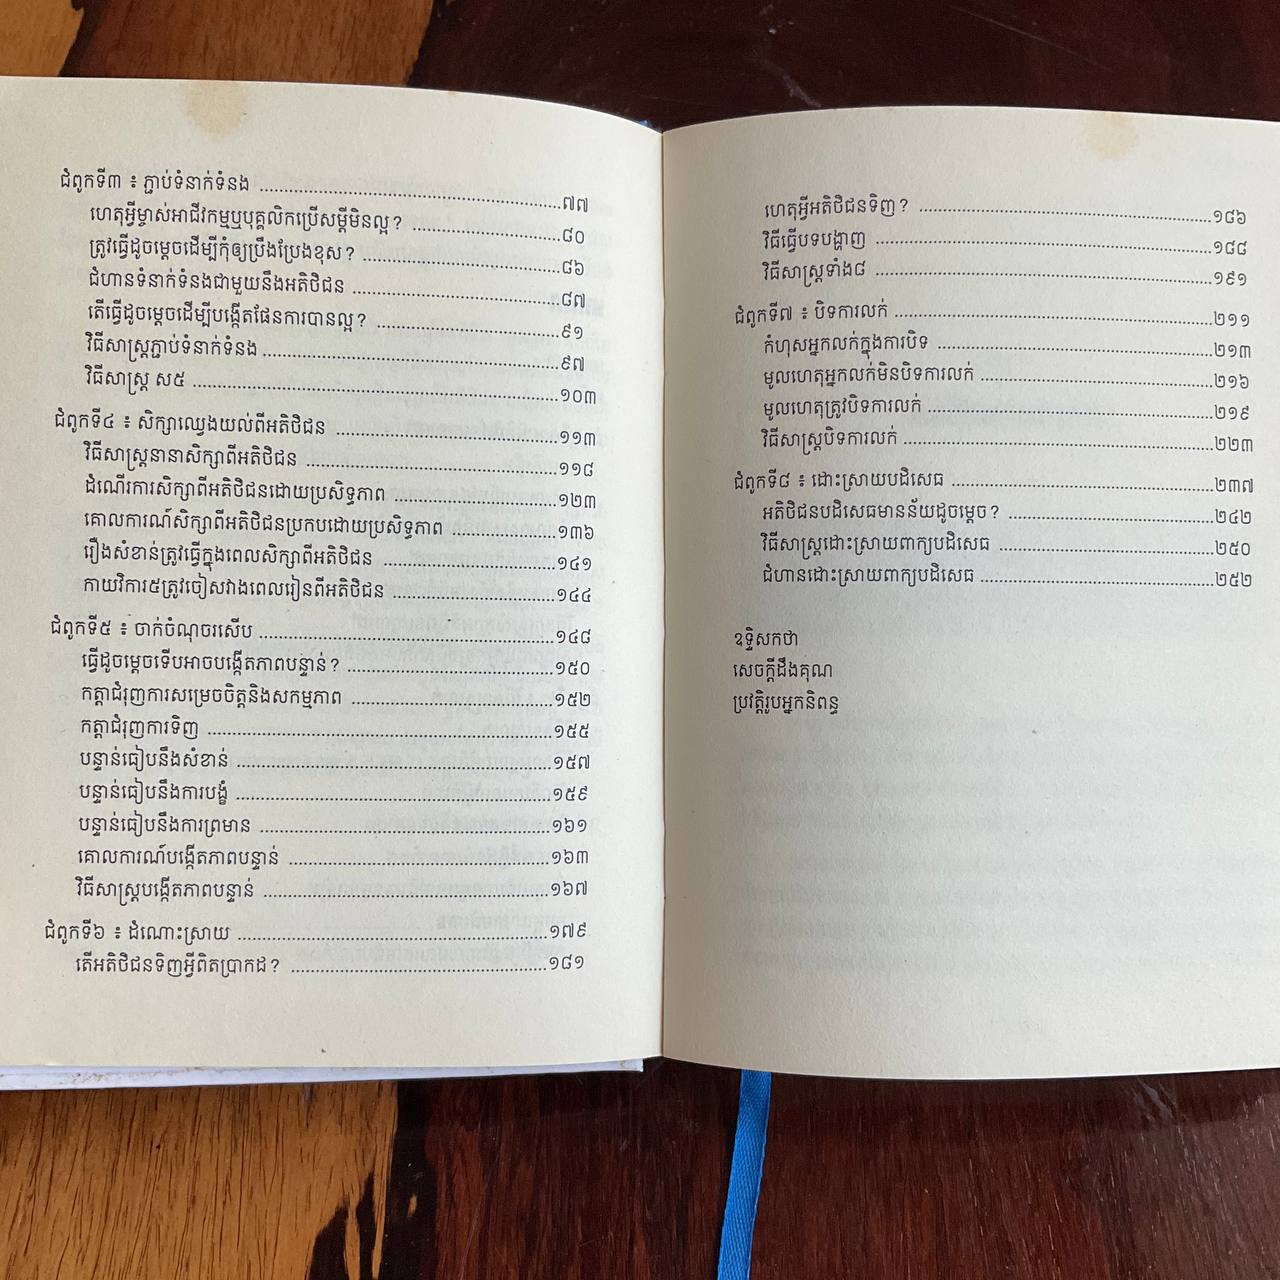 ជំពូកទី៣ ៖ ភ្ជាប់ទំនាក់ទំនង ........ ៧៧
ហេតុអ្វីម្ចាស់អាជីវកម្មឬបុគ្គលិកប្រើសម្តីមិនល្អ? ........ ៨០
ត្រូវធ្វើដូចម្តេចដើម្បីកុំឲ្យប្រឹងប្រែងខុស? ........ ៨៦
ជំហានទំនាក់ទំនងជាមួយនឹងអតិថិជន ........ ៨៧
តើធ្វើដូចម្តេចដើម្បីបង្កើតផែនការបានល្អ? ........ ៩១
វិធីសាស្ត្រភ្ជាប់ទំនាក់ទំនង ........ ៩៧
វិធីសាស្ត្រ ស៥ ........ ១០៣
ជំពូកទី៤ ៖ សិក្សាឈ្វេងយល់ពីអតិថិជន ........ ១១៣
វិធីសាស្ត្រនានាសិក្សាពីអតិថិជន ........ ១១៨
ដំណើរការសិក្សាពីអតិថិជនដោយប្រសិទ្ធភាព ........ ១២៣
គោលការណ៍សិក្សាពីអតិថិជនប្រកបដោយប្រសិទ្ធភាព ........ ១៣៦
រឿងសំខាន់ត្រូវធ្វើក្នុងពេលសិក្សាពីអតិថិជន ........ ១៤១
កាយវិការ៥ត្រូវចៀសវាងពេលរៀនពីអតិថិជន ........ ១៤៤
ជំពូកទី៥ ៖ ចាក់ចំណុចរសើប ........ ១៤៨
ធ្វើដូចម្តេចទើបអាចបង្កើតភាពបន្ទាន់? ........ ១៥០
កត្តាជំរុញការសម្រេចចិត្តនិងសកម្មភាព ........ ១៥២
កត្តាជំរុញការទិញ ........ ១៥៥
បន្ទាន់ធៀបនឹងសំខាន់ ........ ១៥៧
បន្ទាន់ធៀបនឹងការបង្ខំ ........ ១៥៩
បន្ទាន់ធៀបនឹងការព្រមាន ........ ១៦១
គោលការណ៍បង្កើតភាពបន្ទាន់ ........ ១៦៣
វិធីសាស្ត្របង្កើតភាពបន្ទាន់ ........ ១៦៧
ជំពូកទី៦ ៖ ដំណោះស្រាយ ........ ១៧៩
តើអតិថិជនទិញអ្វីពិតប្រាកដ? ........ ១៨១
ហេតុអ្វីអតិថិជនទិញ? ........ ១៨៦
វិធីធ្វើបទបង្ហាញ ........ ១៨៨
វិធីសាស្ត្រទាំង៨ ........ ១៩១
ជំពូកទី៧ ៖ បិទការលក់ ........ ២១១
កំហុសអ្នកលក់ក្នុងការបិទ ........ ២១៣
មូលហេតុអ្នកលក់មិនបិទការលក់ ........ ២១៦
មូលហេតុត្រូវបិទការលក់ ........ ២១៩
វិធីសាស្ត្របិទការលក់ ........ ២២៣
ជំពូកទី៨ ៖ ដោះស្រាយបដិសេធ ........ ២៣៧
អតិថិជនបដិសេធមានន័យដូចម្តេច? ........ ២៤២
វិធីសាស្ត្រដោះស្រាយពាក្យបដិសេធ ........ ២៥០
ជំហានដោះស្រាយពាក្យបដិសេធ ........ ២៥២
ឧទ្ទិសកថា
សេចក្តីដឹងគុណ
ប្រវត្តិរូបអ្នកនិពន្ធ